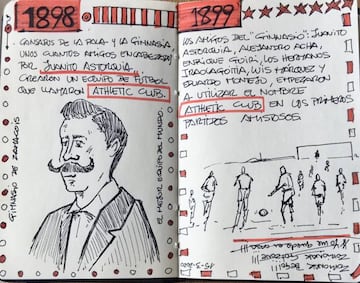 1898
CANSADOS DE LA POLA Y LA GIMNASIA,
UNOS CUANTOS AMIGOS ENCABEZADOS
POR JUANITO ASTORQUIA,
CREARON UN EQUIPO DE FÚTBOL
QUE LLAMARON ATHLETIC CLUB.
GIMNASIO DE ZAMACOIS
EL MEJOR EQUIPO DEL MUNDO
1899
LOS AMIGOS DEL "GIMNASIO": JUANITO
ASTORQUIA, ALEJANDRO ACHA,
ENRIQUE GOIRI, LOS HERMANOS
IRAOLAGOITIA, LUIS MÁRQUEZ Y
EDUARDO MONTEJO, EMPEZARON
A UTILIZAR EL NOMBRE
ATHLETIC CLUB EN LOS PRIMEROS
PARTIDOS AMISTOSOS
15-3-2020